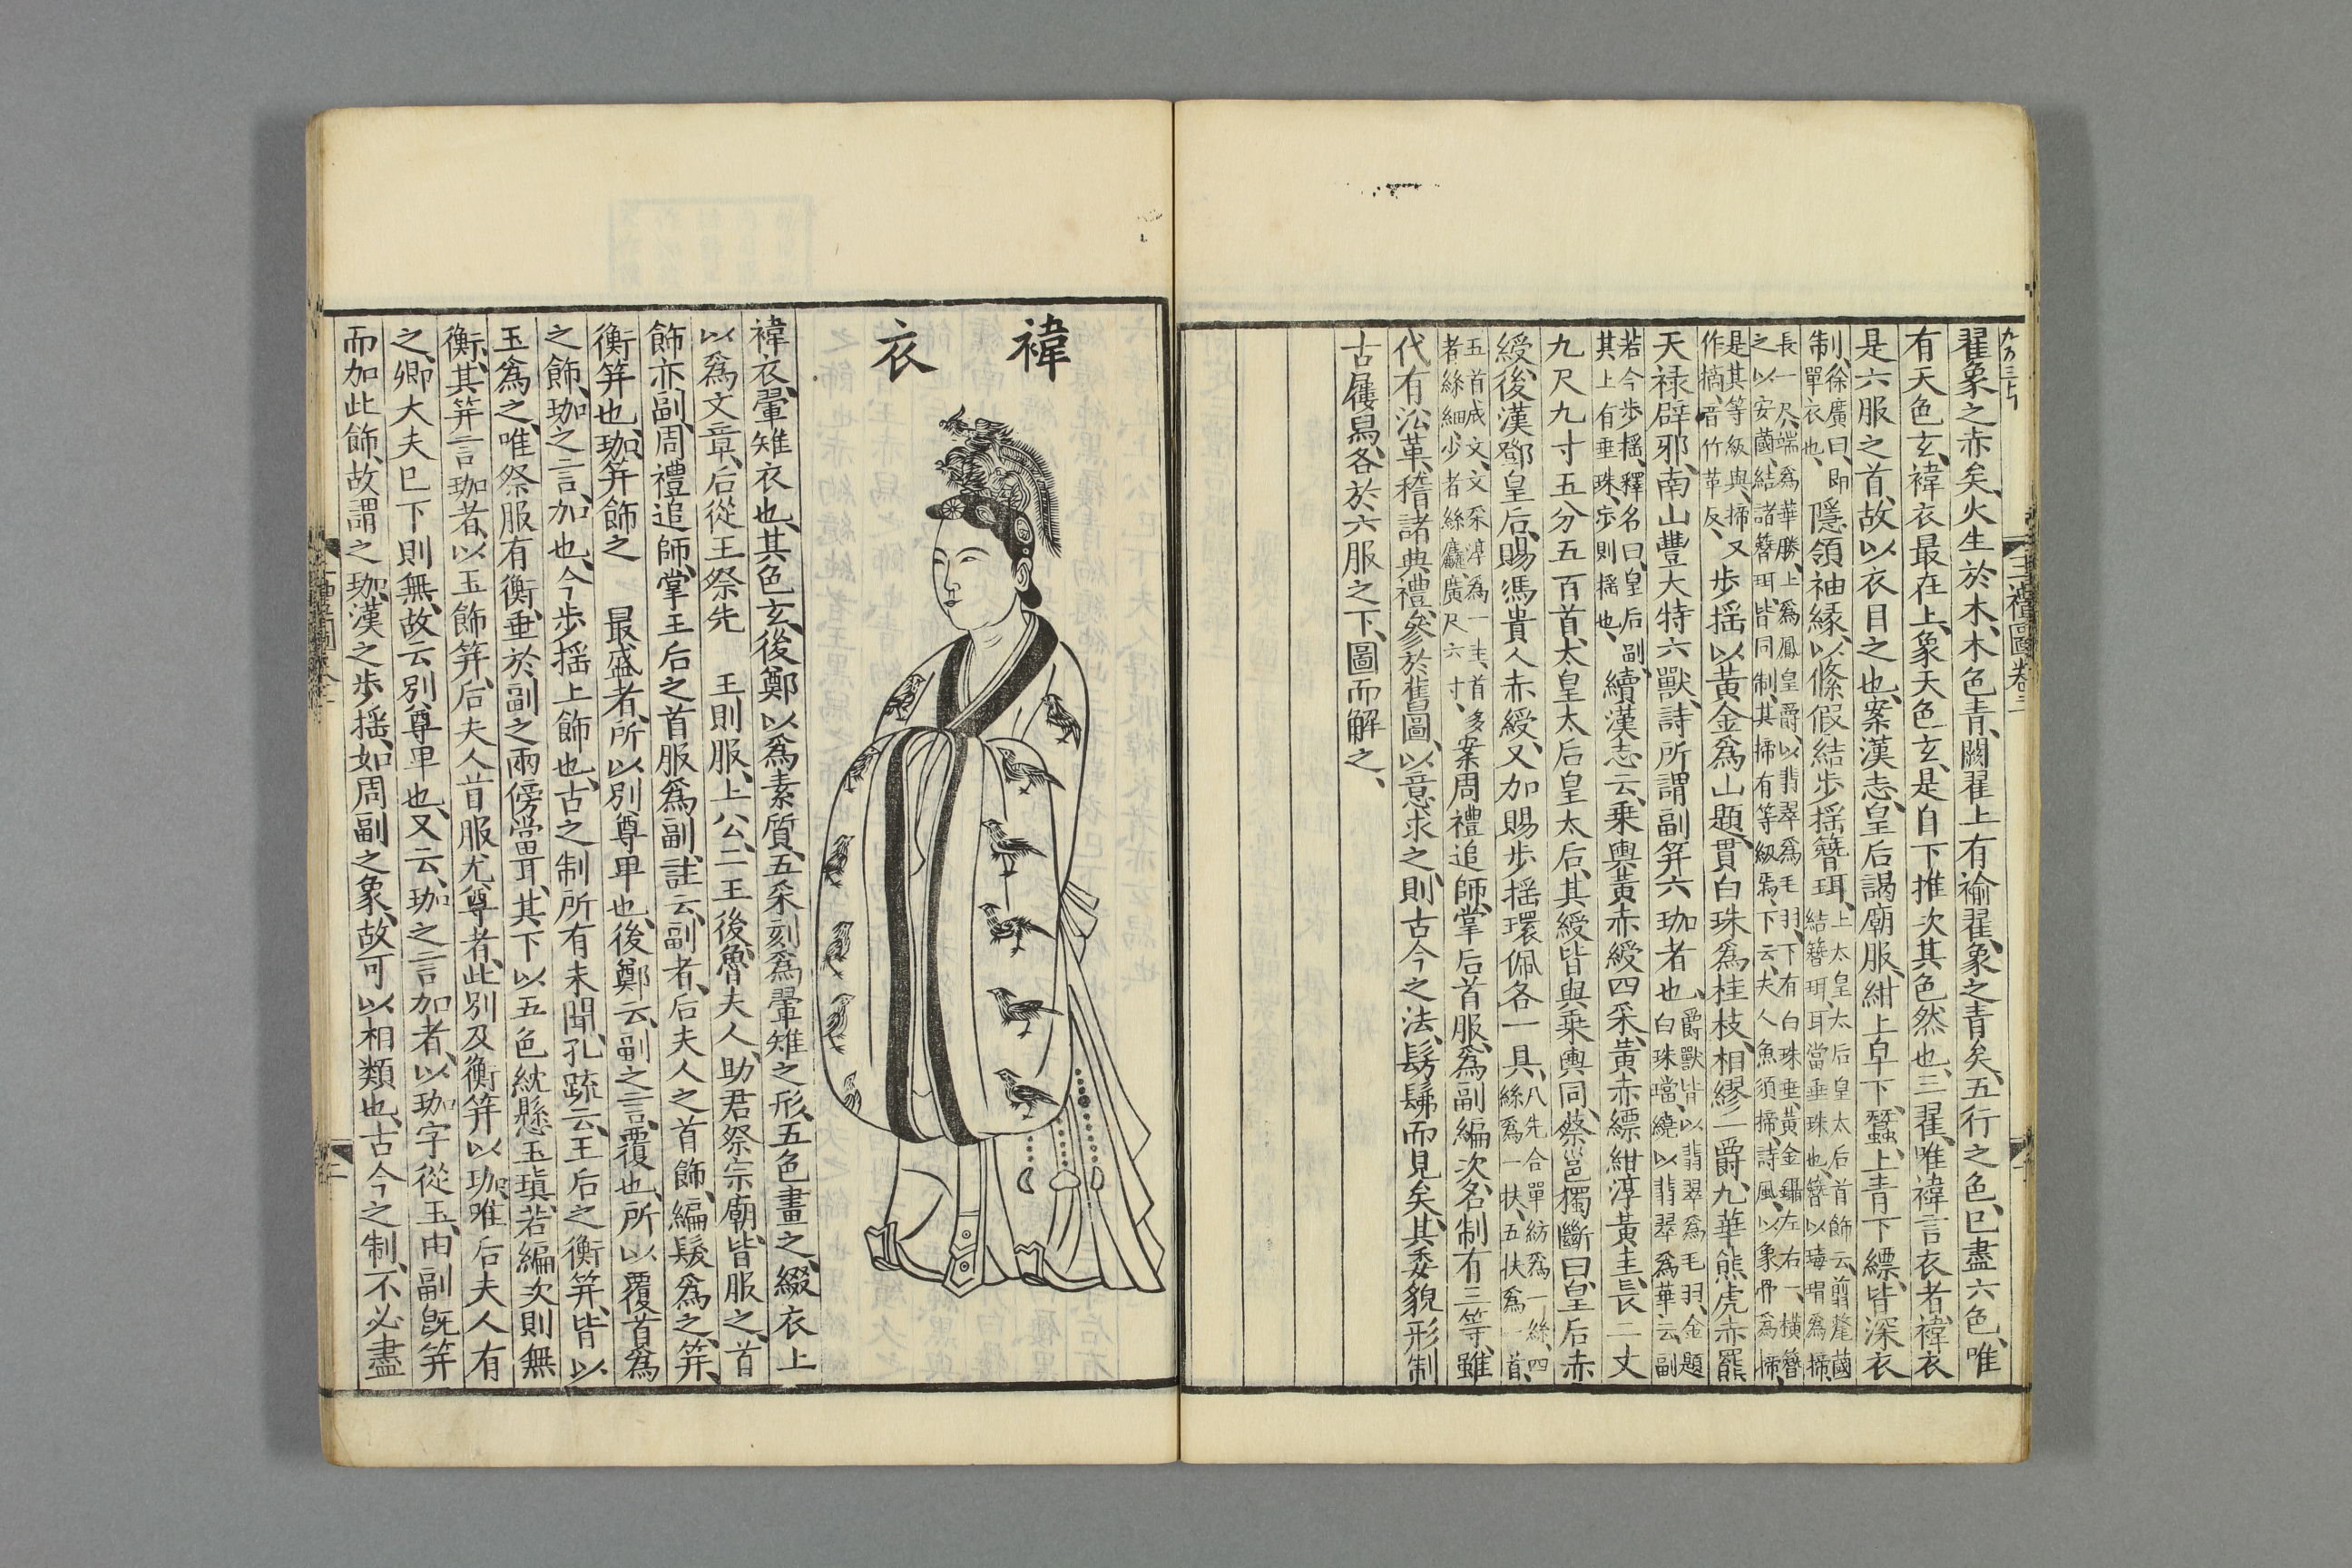 翟象之赤矣、火生於木、木色青、闕翟上有褕翟、象之青矣、五行之色、已盡六色、唯
有天色玄、褘衣最在上、象天色玄、是自下推次其色然也、三翟、唯褘言衣者、褘衣
是六服之首、故以衣目之也、案漢志、皇后謁廟服、紺上皁下、蠶、上青下縹、皆深衣
制、徐廣曰、即單衣也、隱領袖緣、以絛假結步搖簪珥、上太皇太后皇太后首飾云、翦氂蔮結簪珥、耳當垂珠也、簪以瑇瑁爲擿、
長一尺、端爲華勝、上爲鳳皇爵、以翡翠爲毛羽、下有白珠、垂黃金鑷、左右一、橫簪之、以安蔮結、諸簪珥、皆同制、其擿有等級焉、下云、夫人魚須擿、詩風、以象骨爲擿、
是其等級與、擿又作摘、音竹革反、步搖以黃金爲山題、貫白珠爲桂枝、相繆一爵、九華熊虎赤羆
天禄辟邪、南山豐大特六獸、詩所謂副笄六珈者也、爵獸皆以翡翠爲毛羽、金題白珠璫、繞以翡翠爲華云、副
若今步搖、釋名曰、皇后副、其上有垂珠、步則搖也、續漢志云、乗輿黃赤綬四采、黃赤縹紺淳黃圭、長二丈
九尺九寸五分五百首、太皇太后皇太后、其綬皆與乗輿同、蔡邕獨斷曰、皇后赤
綬、後漢鄧皇后、賜馮貴人赤綬、又加賜步搖環佩各一具、八先合單紡爲一絲、四絲爲一扶、五扶爲一首、
五首成文、文采淳爲一圭、首多者絲細、少者絲麤、廣尺六寸、案周禮追師、掌后首服、爲副編次、名制有三等、雖
代有沿革、稽諸典禮、參於舊圖、以意求之、則古今之法、髣髴而見矣、其委貌形制
古屨舄、各於六服之下、圖而解之、
褘衣
褘衣、翬雉衣也、其色玄、後鄭以爲素質、五采刻爲翬雉之形、五色畫之、綴衣上
以爲文章、后從王祭先 王則服、上公、二王後魯夫人、助君祭宗廟、皆服之、首
飾亦副、周禮追師、掌王后之首服爲副、註云、副者、后夫人之首飾、編髮爲之、笄、
衡笄也、珈、笄飾之 最盛者、所以別尊卑也、後鄭云、副之言、覆也、所以覆首爲
之飾、珈之言、加也、今步搖上飾也、古之制所有未聞、孔疏云、王后之衡笄、皆以
玉爲之、唯祭服有衡、垂於副之兩傍當耳、其下以五色紞懸玉瑱、若編次則無
衡、其笄言珈者、以玉飾笄、后夫人首服尤尊者、此別及衡笄以珈、唯后夫人有
之、卿大夫已下則無、故云別尊卑也、又云、珈之言加者、以珈字從玉、由副既笄
而加此飾、故謂之珈、漢之步搖、如周副之象、故可以相類也、古今之制、不必盡